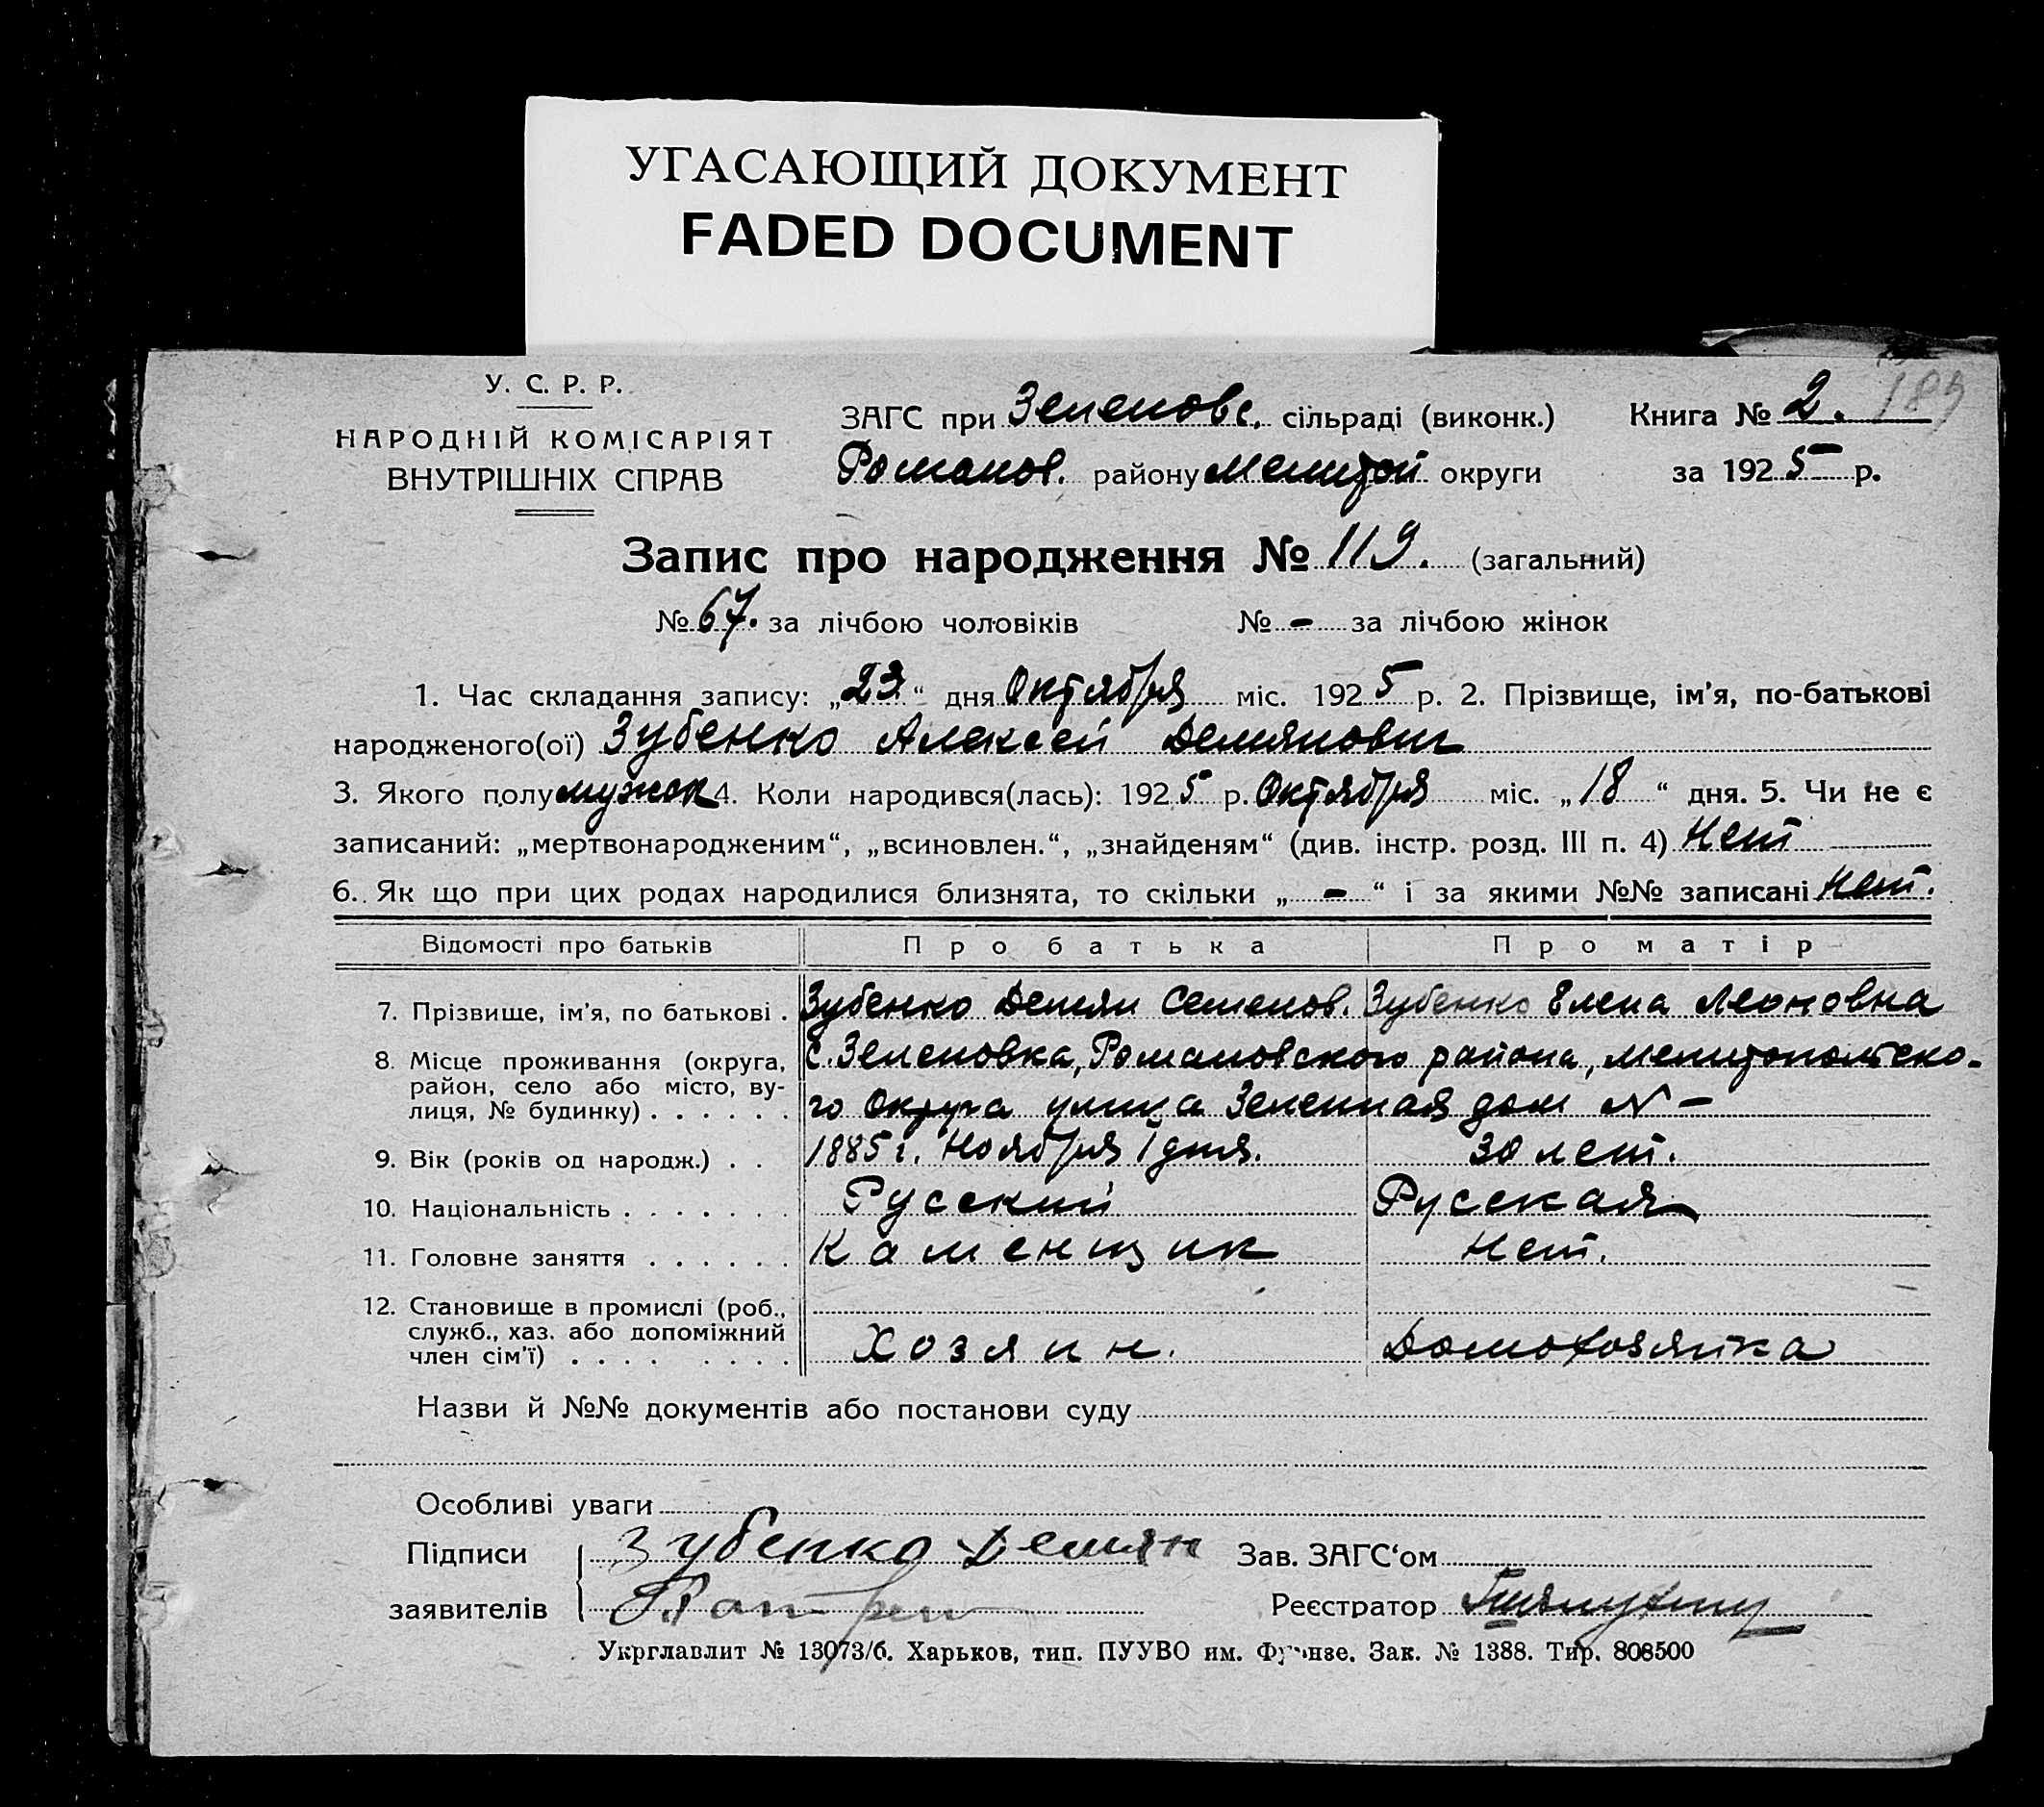 УГАСАЮЩИЙ ДОКУМЕНТ
FADED DOCUMENT
У. С. Р. Р.
НАРОДНІЙ КОМІСАРІЯТ
ВНУТРІШНІХ СПРАВ
ЗАГС при Зеленовс. сільраді (виконк.)
Романов. району Мелитой округи
Книга № 2. 189
за 1925 р.
Запис про народження № 119. (загальний)
№ 67. за лічбою чоловіків № - за лічбою жінок
1. Час складання запису: „23“ дня Октября міс. 1925 р. 2. Прізвище, ім’я, по-батькові
народженого(ої) Зубенко Алексей Демянович
3. Якого полу мужск 4. Коли народився(лась): 1925 р. Октября міс. „18“ дня. 5. Чи не є
записаний: „мертвонародженим“, „всиновлен.“, „знайденям“ (див. інстр. розд. III п. 4) Нет
6. Як що при цих родах народилися близнята, то скільки „-“ і за якими №№ записані Нет.
Відомості про батьків Про батька Про матір
7. Прізвище, ім’я, по батькові . Зубенко Демян Семенов. Зубенко Елена Леоновна
8. Місце проживання (округа, с. Зеленовка, Романовского района, Мелитопольско-
район, село або місто, ву-
лиця, № будинку) . . . . . . го Округа улица Зеленная дом № -
9. Вік (років од народж.) . . 1885 г. Ноября 1 дня. 30 лет.
10. Національність . . . . . . . Русский Русская
11. Головне заняття . . . . . . Каменщик Нет.
12. Становище в промислі (роб.,
служб., хаз. або допоміжний
член сім’ї) . . . . . . . . Хозяин. Домохозяйка
Назви й №№ документів або постанови суду
Особливі уваги
Підписи Зубенко Демян Зав. ЗАГС‘ом
заявителів Реєстратор
Укрглавлит № 13073/б. Харьков, тип. ПУУВО им. Фрунзе. Зак. № 1388. Тир. 808500